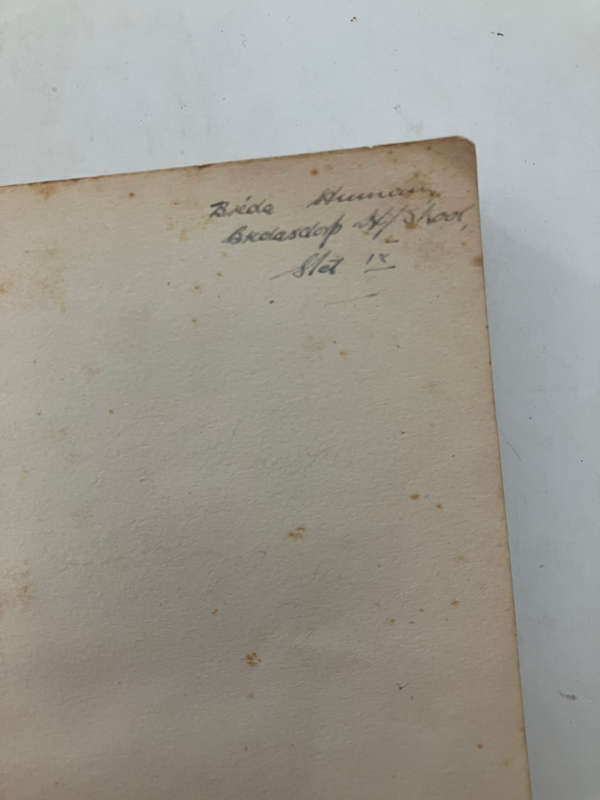 Bréda Human
Bredasdorp H/Skool,
Std IX